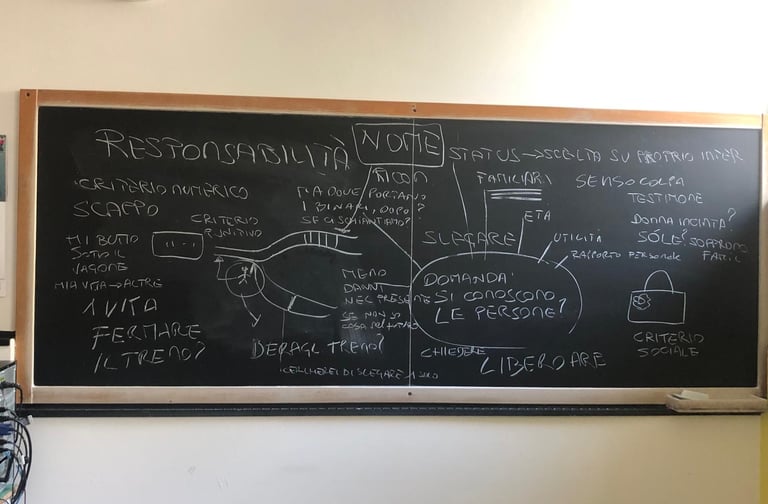 RESPONSABILITÀ
NOME
STATUS → SCELTA SU PROPRIO INTER
CRITERIO NUMERICO
SCAPPO
CRITERIO
MI BUTTO
SOTTO IL
VAGONE
MIA VITA → ALTRE
1 VITA
FERMARE
IL TRENO?
MA DOVE PORTANO
I BINARI, DOPO?
SE CI SCHIANTIAMO?
MENO
DANNI
NEL PRESENTE
SE NON SO
COSA NEL FUTURO
DERAGL TRENO?
DI SLEGARE 1 SOLO
FAMILIARI
ETÀ
UTILITÀ
RAPPORTO PERSONALE
SLEGARE
DOMANDA:
SI CONOSCONO
LE PERSONE?
CHIEDERE
LIBERO ARE
SENSO COLPA
TESTIMONE
DONNA INCINTA?
SOLE?
CRITERIO
SOCIALE